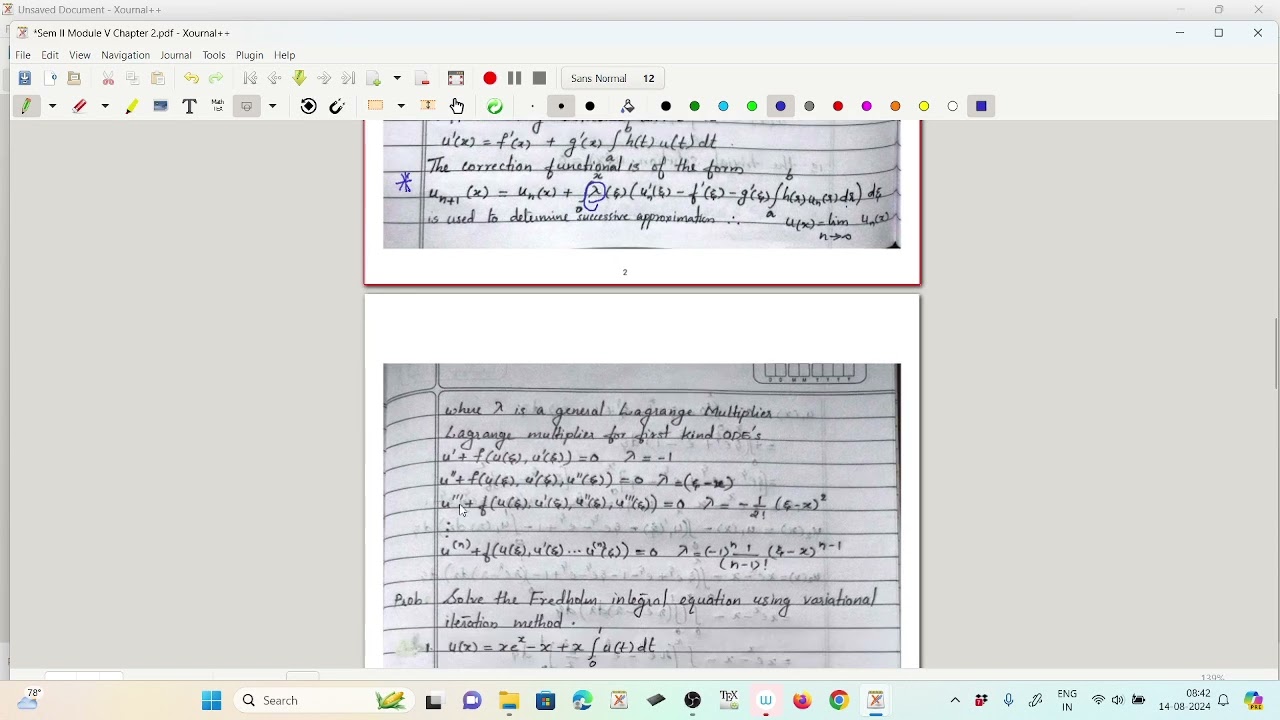 Unsaved Document - Xournal++
*Sem II Module V Chapter 2.pdf - Xournal++
File Edit View Navigation Journal Tools Plugin Help
Sans Normal 12
u'(x) = f'(x) + g'(x) ∫_a^b h(t) u(t) dt .
The correction functional is of the form
* u_{n+1}(x) = u_n(x) + ∫_0^x λ(ξ) (u_n'(ξ) - f'(ξ) - g'(ξ) ∫_a^b h(r) u_n(r) dr) dξ
is used to determine successive approximation ∴ u(x) = lim_{n→∞} u_n(x)
2
where λ is a general Lagrange Multiplier
Lagrange multiplier for first kind ODE's
u' + f(u(ξ), u'(ξ)) = 0 λ = -1
u'' + f(u(ξ), u'(ξ), u''(ξ)) = 0 λ = (ξ - x)
u''' + f(u(ξ), u'(ξ), u''(ξ), u'''(ξ)) = 0 λ = - 1/2! (ξ - x)^2
:
u^(n) + f(u(ξ), u'(ξ) ... u^(n)(ξ)) = 0 λ = (-1)^n 1/(n-1)! (ξ - x)^{n-1}
Prob. Solve the Fredholm integral equation using variational
iteration method .
1. u(x) = xe^x - x + x ∫_0^1 u(t) dt
139%
78°
Search
ENG
IN
08:42
14-08-2024